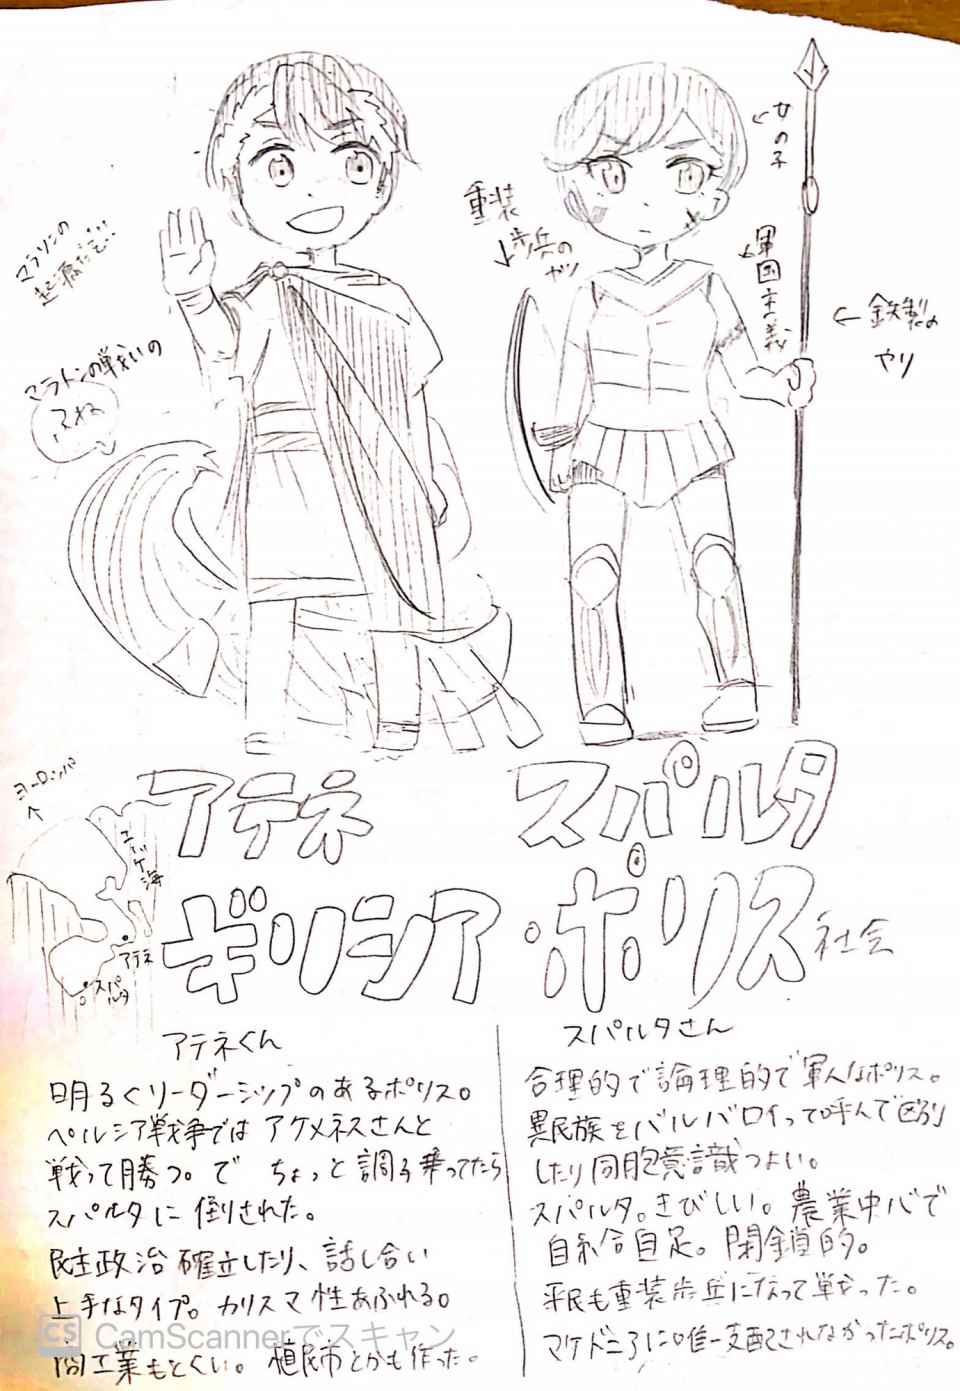 女の子
重装
歩兵の
やり
軍国主義
鉄製の
やり
マラソンの
起源だぞ!!
マラトンの戦いの
ふね
ヨーロッパ
エーゲ海
アテネ
スパルタ
アテネ
スパルタ
ギリシア・ポリス社会
アテネくん
明るくリーダーシップのあるポリス。
ペルシア戦争ではアケメネスさんと
戦って勝つ。で ちょっと調子乗ってたら
スパルタに倒された。
民主政治確立したり、話し合い
上手なタイプ。カリスマ性あふれる。
商工業もとくい。植民市とかも作った。
スパルタさん
合理的で論理的で軍人なポリス。
異民族をバルバロイって呼んで区別
したり同胞意識つよい。
スパルタ。きびしい。農業中心で
自給自足。閉鎖的。
平民も重装歩兵になって戦った。
マケドニアに唯一支配されなかったポリス。
CS CamScannerでスキャン